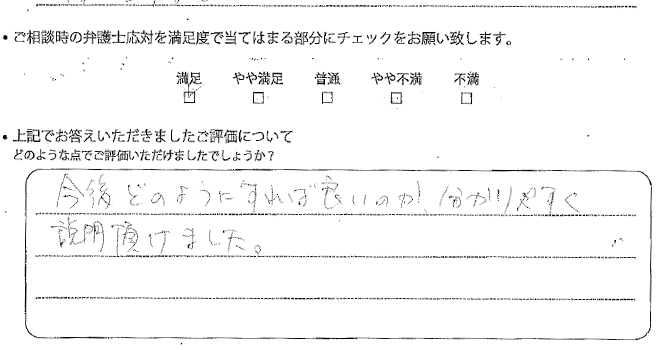 ・ご相談時の弁護士応対を満足度で当てはまる部分にチェックをお願い致します。
満足 やや満足 普通 やや不満 不満
・上記でお答えいただきましたご評価について
どのような点でご評価いただけましたでしょうか？
今後どのようにすれば良いのか、分かりやすく
説明頂けました。